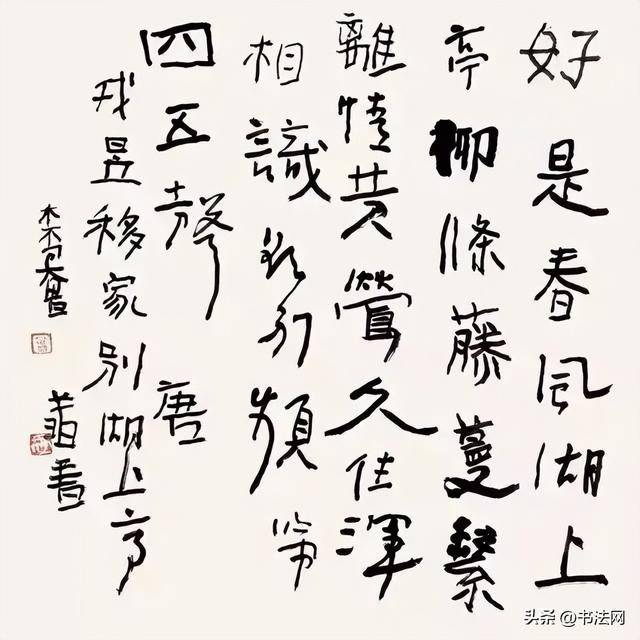 好是春風湖上
亭柳條藤蔓繫
離情黃鶯久住渾
相識欲別頻啼
四五聲 唐
戎昱移家別湖上亭
头条 @书法网